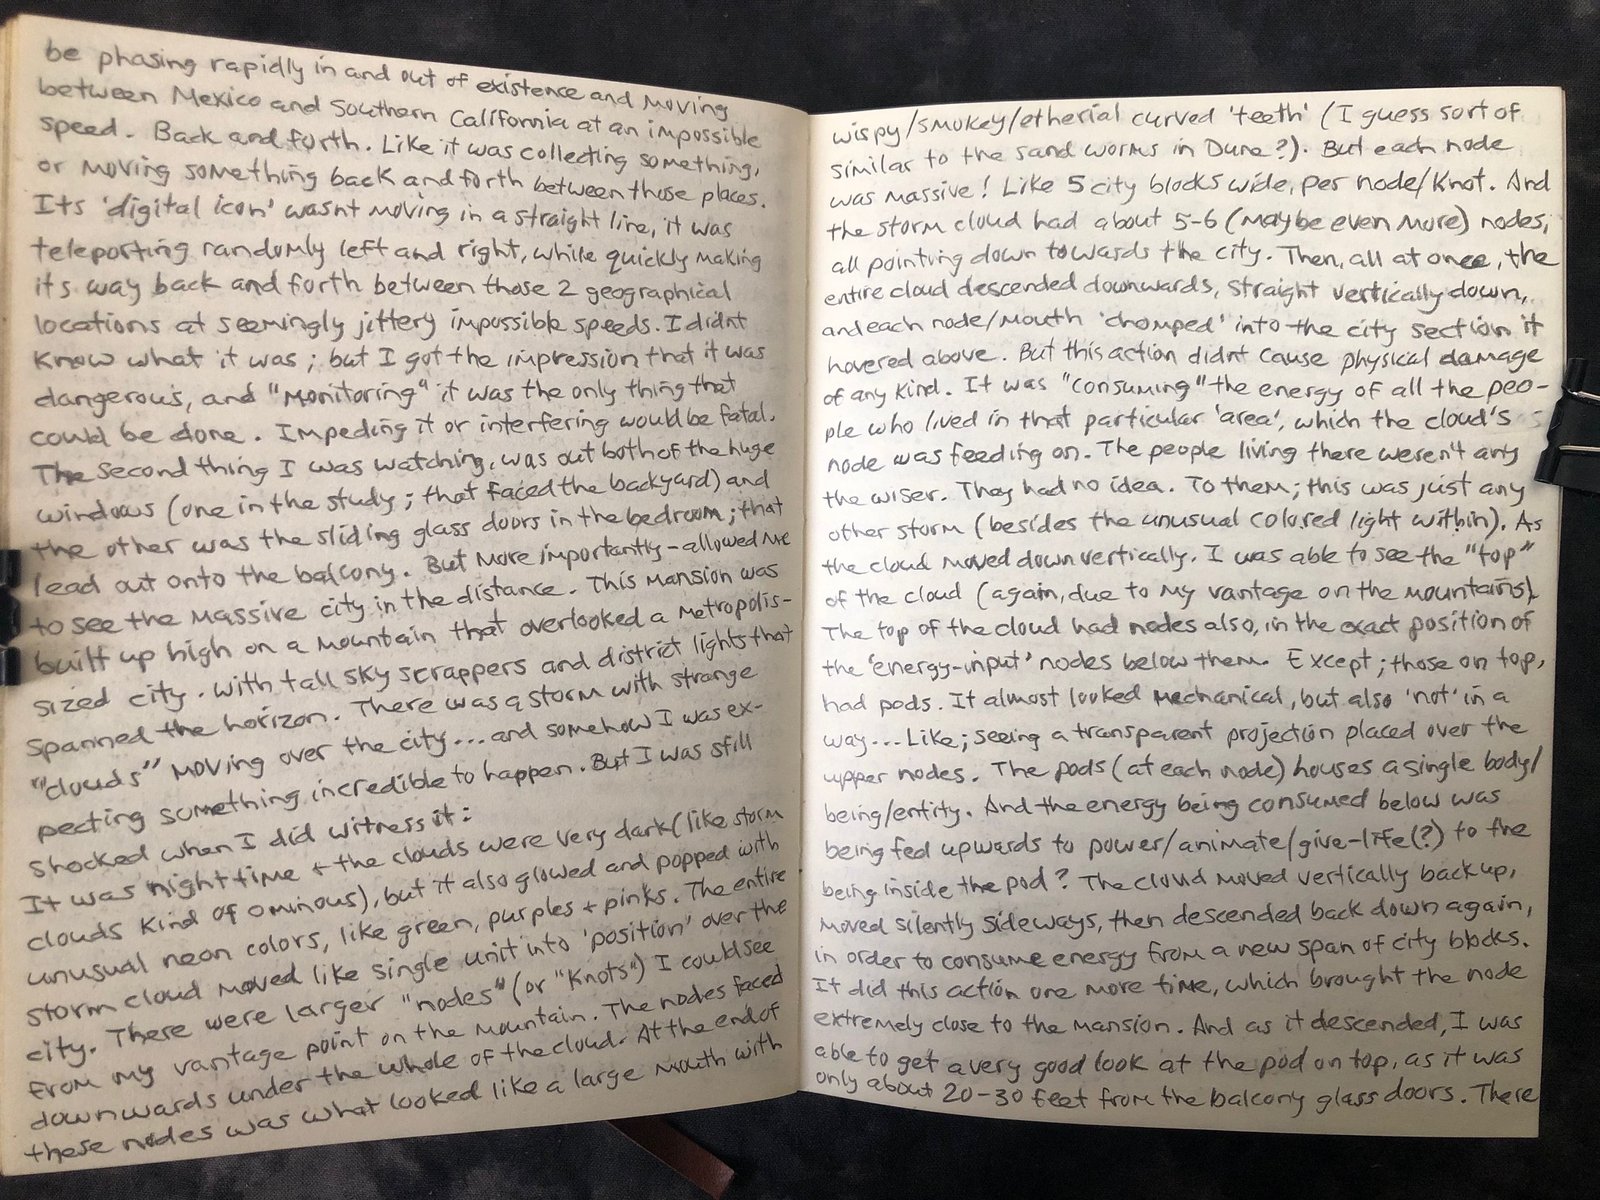 be phasing rapidly in and out of existence and moving
between Mexico and Southern California at an impossible
speed. Back and forth. Like it was collecting something,
or moving something back and forth between those places.
Its 'digital icon' wasnt moving in a straight line, it was
teleporting randomly left and right, while quickly making
its way back and forth between those 2 geographical
locations at seemingly jittery impossible speeds. I didnt
know what it was; but I got the impression that it was
dangerous, and "monitoring" it was the only thing that
could be done. Impeding it or interfering would be fatal.
The second thing I was watching, was out both of the huge
windows (one in the study; that faced the backyard) and
the other was the sliding glass doors in the bedroom; that
lead out onto the balcony. But more importantly - allowed me
to see the massive city in the distance. This mansion was
built up high on a mountain that overlooked a metropolis-
sized city. With tall sky scrappers and district lights that
spanned the horizon. There was a storm with strange
"clouds" moving over the city... and somehow I was ex-
pecting something incredible to happen. But I was still
shocked when I did witness it:
It was nighttime + the clouds were very dark (like storm
clouds kind of ominous), but it also glowed and popped with
unusual neon colors, like green, purples + pinks. The entire
storm cloud moved like single unit into 'position' over the
city. There were larger "nodes" (or "knots") I could see
from my vantage point on the mountain. The nodes faced
downwards under the whole of the cloud. At the end of
these nodes was what looked like a large mouth with
wispy/smokey/etherial curved 'teeth' (I guess sort of
similar to the sand worms in Dune?). But each node
was massive! Like 5 city blocks wide, per node/knot. And
the storm cloud had about 5-6 (maybe even more) nodes,
all pointing down towards the city. Then, all at once, the
entire cloud descended downwards, straight vertically down,
and each node/mouth 'chomped' into the city section it
hovered above. But this action didnt cause physical damage
of any kind. It was "consuming" the energy of all the peo-
ple who lived in that particular 'area', which the cloud's
node was feeding on. The people living there weren't any
the wiser. They had no idea. To them; this was just any
other storm (besides the unusual colored light within). As
the cloud moved down vertically. I was able to see the "top"
of the cloud (again, due to my vantage on the mountains).
The top of the cloud had nodes also, in the exact position of
the 'energy-input' nodes below them. Except; those on top,
had pods. It almost looked mechanical, but also 'not' in a
way... Like; seeing a transparent projection placed over the
upper nodes. The pods (at each node) houses a single body/
being/entity. And the energy being consumed below was
being fed upwards to power/animate/give-life(?) to the
being inside the pod? The cloud moved vertically back up,
moved silently sideways, then descended back down again,
in order to consume energy from a new span of city blocks.
It did this action one more time, which brought the node
extremely close to the mansion. And as it descended, I was
able to get a very good look at the pod on top, as it was
only about 20-30 feet from the balcony glass doors. There